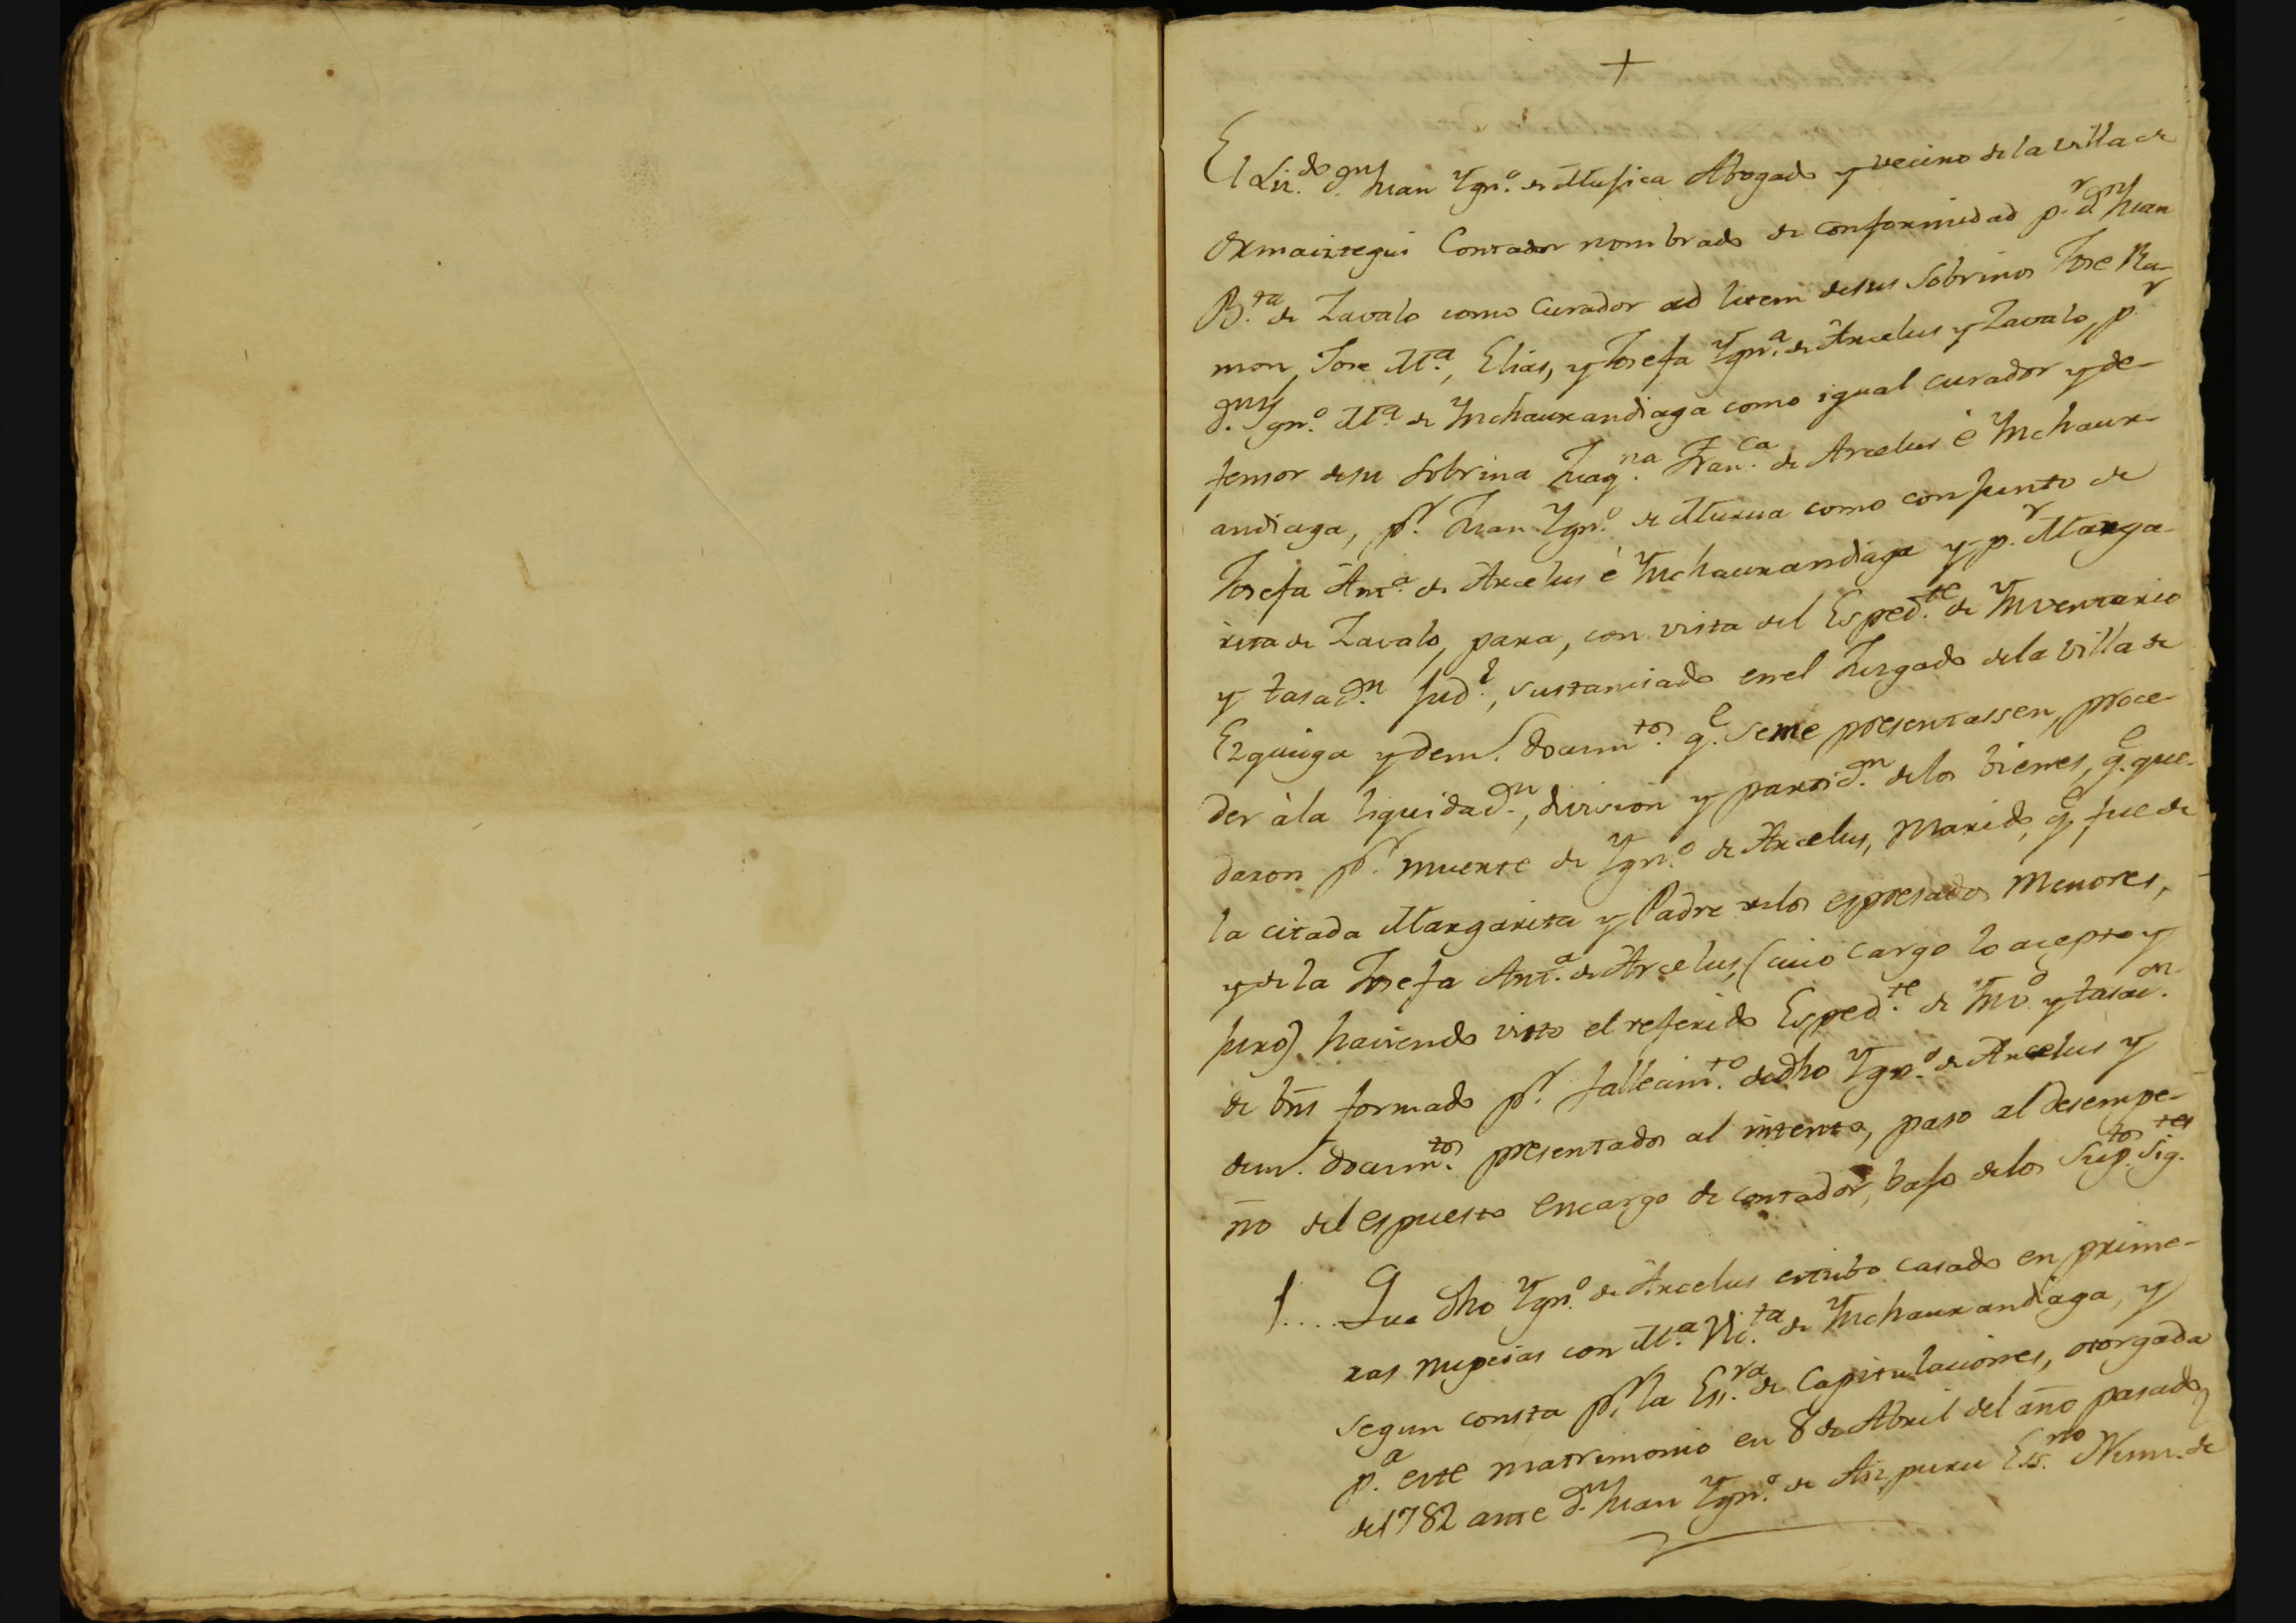 +
El Liz.do D.n Juan Ygn.o de Mugica Abogado y vecino de la villa de
Ormaiztegui Contador nombrado de conformidad p.r d.n Juan
B.ta de Zavalo como Curador ad litem de sus Sobrinos Jose Ra-
mon, Jose M.a, Elias, y Josefa Ygn.a de Arcelus y Zavalo, p.r
D.n Ygn.o M.a de Ynchaurandiaga como igual curador y de-
fensor de su Sobrina Juaq.na Fran.ca de Arcelus è Ynchaur-
andiaga, p.r Juan Ygn.o de Murua como conjunto de
Josefa Ant.a de Arcelus è Ynchaurandiaga y p.r Marga-
rita de Zavalo, para, con vista del Esped.te de Ynventario
y tasac.n jud.l, sustanciado en el Juzgado de la Villa de
Ezquioga y dem.s docum.tos q.e se me presentassen, proce-
der à la liquidac.n, division y partic.n de los bienes, q.e que-
daron p.r muerte de Ygn.o de Arcelus, Marido, q.e fue de
la citada Margarita y Padre de los espresados Menores,
y de la Josefa Ant.a de Arcelus, (cuio cargo lo acepto y
juro) haviendo visto el referido Esped.te de Ynv.o y tasac.on
de bñs formado p.r fallecim.to de dho Ygn.o de Arcelus y
dem.s docum.tos presentados al intento, paso al desempe-
ño del espuesto encargo de contador, bajo de los Sup.tos sig.tes
1.... Que dho Ygn.o de Arcelus estubo casado en prime-
ras nupcias con M.a Vic.ta de Ynchaurandiaga, y
segun consta p.r la Ess.ra de Capitulaciones, otorgada
p.a este matrimonio en 8 de Abril del año pasado
de 1782 ante D.n Juan Ygn.o de Aizpuru Ess.no Num. de